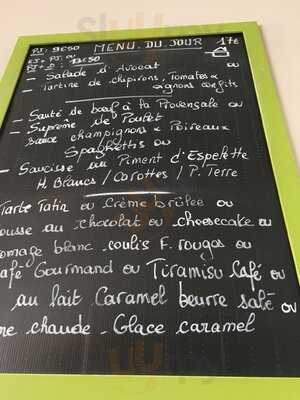 PJ: 9€50 MENU DU JOUR 17€
PJ + E ou
PJ + D : 13€50
- Salade d'Avocat ou
- Tartine de chipirons, Tomates &
oignons confits
- Sauté de bœuf à la Provençale ou
- Suprême de Poulet
sauce champignons & Poireaux
Spaghettis ou
- Saucisse au Piment d'Espelette
H. Blancs / Carottes / P. Terre
Tarte Tatin ou Crème brûlée ou
ousse au chocolat ou cheesecake ou
romage blanc coulis F. rouges ou
afé Gourmand ou Tiramisu Café ou
au lait Caramel beurre salé ou
me chaude - Glace caramel